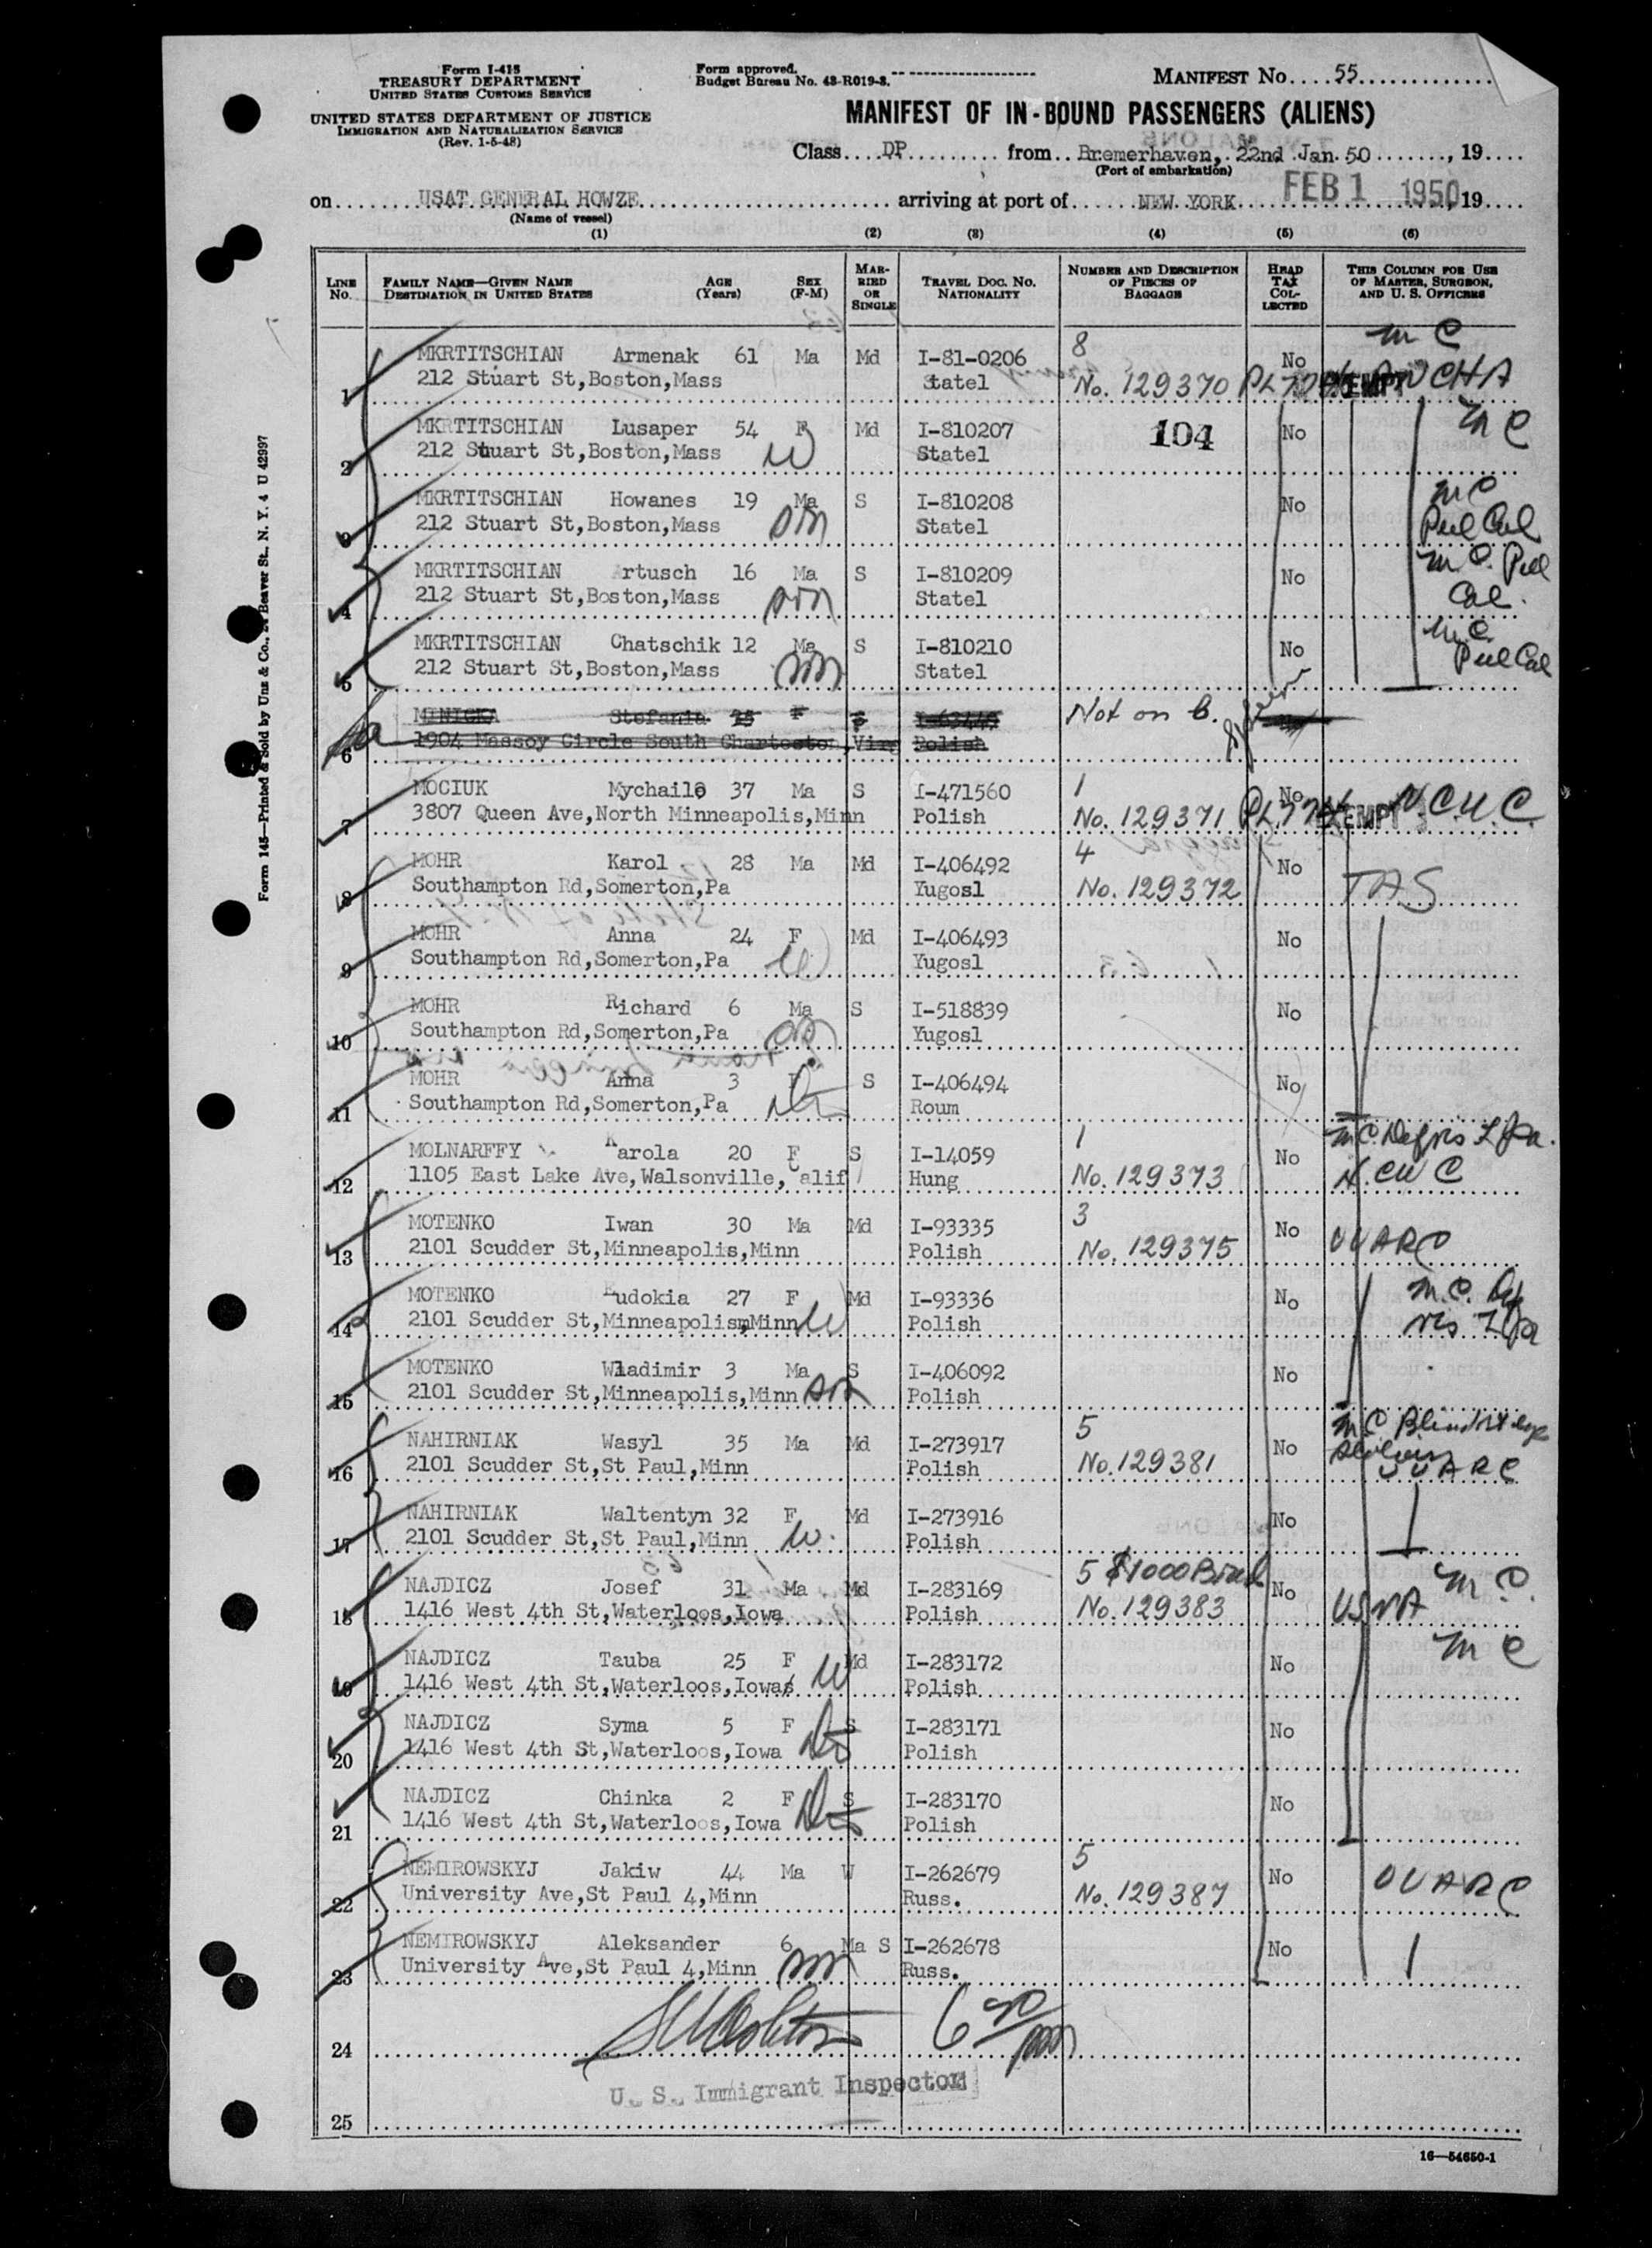 Form I-415
TREASURY DEPARTMENT
UNITED STATES CUSTOMS SERVICE
UNITED STATES DEPARTMENT OF JUSTICE
IMMIGRATION AND NATURALIZATION SERVICE
(Rev. 1-5-48)
Form approved.
Budget Bureau No. 43-R019-3.
MANIFEST No. 55
MANIFEST OF IN-BOUND PASSENGERS (ALIENS)
Class DP from Bremerhaven, 22nd Jan. 50, 19
(Port of embarkation)
on USAT GENERAL HOWZE arriving at port of NEW YORK FEB 1 1950, 19
(Name of vessel)
(1) (2) (3) (4) (5) (6)
LINE No. FAMILY NAME—GIVEN NAME DESTINATION IN UNITED STATES AGE (Years) SEX (F-M) MARRIED OR SINGLE TRAVEL DOC. NO. NATIONALITY NUMBER AND DESCRIPTION OF PIECES OF BAGGAGE HEAD TAX COLLECTED THIS COLUMN FOR USE OF MASTER, SURGEON, AND U. S. OFFICERS
MKRTITSCHIAN Armenak 61 Ma Md I-81-0206 8 No m C
1 212 Stuart St,Boston,Mass Statel No. 129370 EMPT ANCHA
MKRTITSCHIAN Lusaper 54 F Md I-810207 104 No m C
2 212 Stuart St,Boston,Mass W Statel
MKRTITSCHIAN Howanes 19 Ma S I-810208 No m C
3 212 Stuart St,Boston,Mass son Statel Pul Cal
MKRTITSCHIAN Artusch 16 Ma S I-810209 No m C. Pul
4 212 Stuart St,Boston,Mass son Statel Cal.
MKRTITSCHIAN Chatschik 12 Ma S I-810210 No m C.
5 212 Stuart St,Boston,Mass son Statel Pul Cal
MINICKA Stefania F Not on b.
6 1904 Massoy Circle South Charteston, Polish
MOCIUK Mychailo 37 Ma S I-471560 1 No
7 3807 Queen Ave,North Minneapolis,Minn Polish No. 129371 EMPT N.C.W.C.
MOHR Karol 28 Ma Md I-406492 4 No
8 Southampton Rd,Somerton,Pa Yugosl No. 129372 TAS
MOHR Anna 24 F Md I-406493 No
9 Southampton Rd,Somerton,Pa W Yugosl
MOHR Richard 6 Ma S I-518839 No
10 Southampton Rd,Somerton,Pa Yugosl
MOHR Anna 3 F S I-406494 No
11 Southampton Rd,Somerton,Pa Roum
MOLNARFFY Karola 20 F S I-14059 1 No m C.
12 1105 East Lake Ave,Walsonville,Calif Hung No. 129373 N.C.W.C
MOTENKO Iwan 30 Ma Md I-93335 3 No
13 2101 Scudder St,Minneapolis,Minn Polish No. 129375 UUARC
MOTENKO Eudokia 27 F Md I-93336 No m.C.
14 2101 Scudder St,Minneapolis,Minn W Polish
MOTENKO Wladimir 3 Ma S I-406092 No
15 2101 Scudder St,Minneapolis,Minn son Polish
NAHIRNIAK Wasyl 35 Ma Md I-273917 5 No m C
16 2101 Scudder St,St Paul,Minn Polish No. 129381 UUARC
NAHIRNIAK Waltentyn 32 F Md I-273916 No
17 2101 Scudder St,St Paul,Minn W. Polish
NAJDICZ Josef 31 Ma Md I-283169 5 $1000 Bond No m C.
18 1416 West 4th St,Waterloos,Iowa Polish No. 129383 USNA
NAJDICZ Tauba 25 F Md I-283172 No m C
19 1416 West 4th St,Waterloos,Iowa W Polish
NAJDICZ Syma 5 F S I-283171 No
20 1416 West 4th St,Waterloos,Iowa Polish
NAJDICZ Chinka 2 F S I-283170 No
21 1416 West 4th St,Waterloos,Iowa Polish
NEMIROWSKYJ Jakiw 44 Ma W I-262679 5 No
22 University Ave,St Paul 4,Minn Russ. No. 129387 UUARC
NEMIROWSKYJ Aleksander 6 Ma S I-262678 No
23 University Ave,St Paul 4,Minn son Russ.
24
U. S. Immigrant Inspector
25
16—54650-1
Form 145—Printed & Sold by Unz & Co., Beaver St., N. Y. 4 U 42997